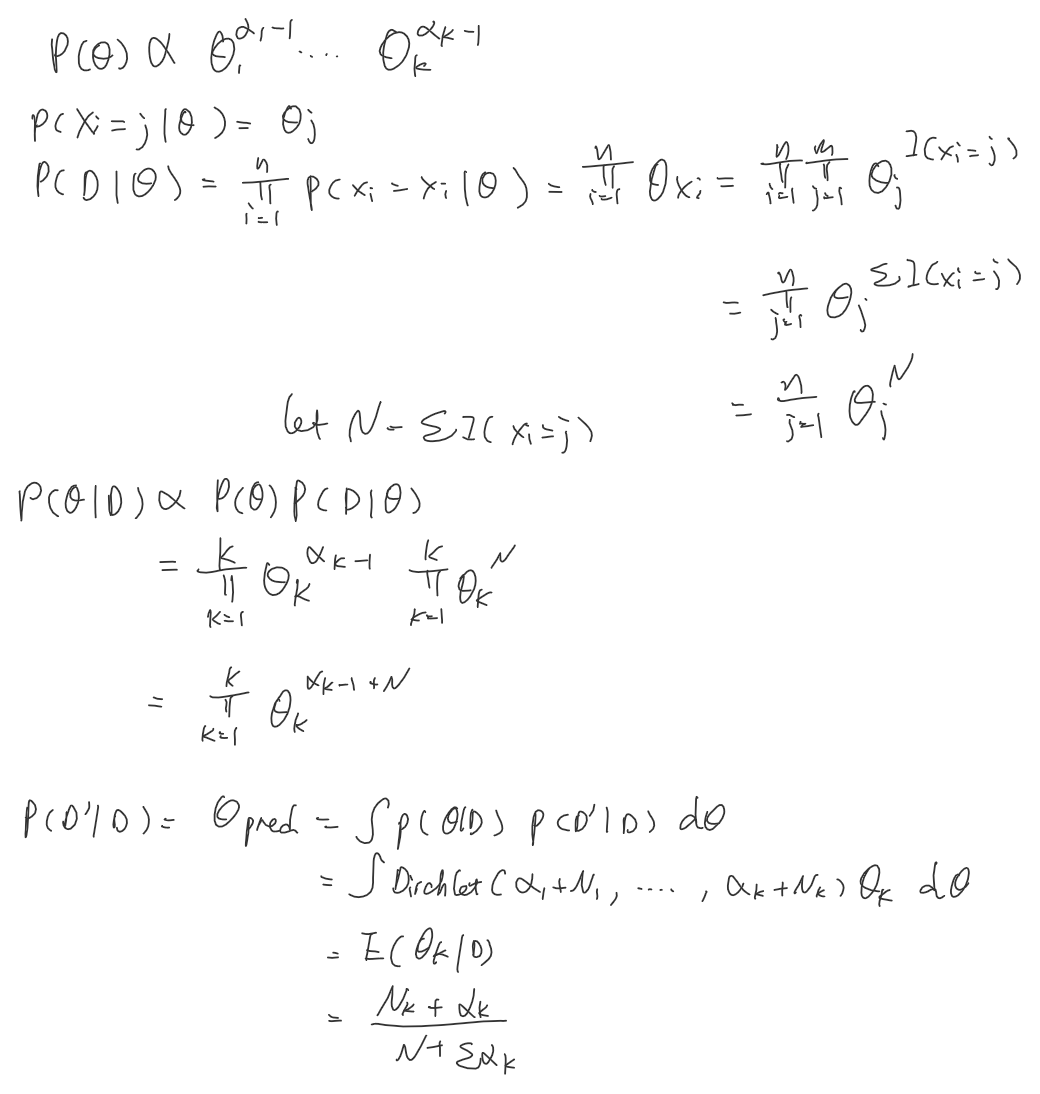 P(θ) ∝ θ₁^{α₁-1} .... θ_k^{α_k-1}
P(X_i = j | θ) = θ_j
P(D|θ) = ∏_{i=1}^{n} P(x_i = x_i | θ) = ∏_{i=1}^{n} θ_{x_i} = ∏_{i=1}^{n} ∏_{j=1}^{m} θ_j^{I(x_i=j)}
= ∏_{j=1}^{n} θ_j^{ΣI(x_i=j)}
= ∏_{j=1}^{n} θ_j^{N}
let N - ΣI(x_i=j)
P(θ|D) ∝ P(θ) P(D|θ)
= ∏_{k=1}^{k} θ_k^{α_k-1} ∏_{k=1}^{k} θ_k^{N}
= ∏_{k=1}^{k} θ_k^{α_k-1+N}
P(D'|D) = θ_pred = ∫ p(θ|D) p(D'|D) dθ
= ∫ Dirchlet(α₁+N₁, ...., α_k+N_k) θ_k dθ
= E(θ_k|D)
= \frac{N_k + α_k}{N + Σα_k}